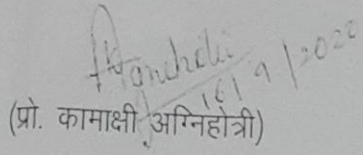 16/9/2022
(प्रो. कामाक्षी अग्निहोत्री)